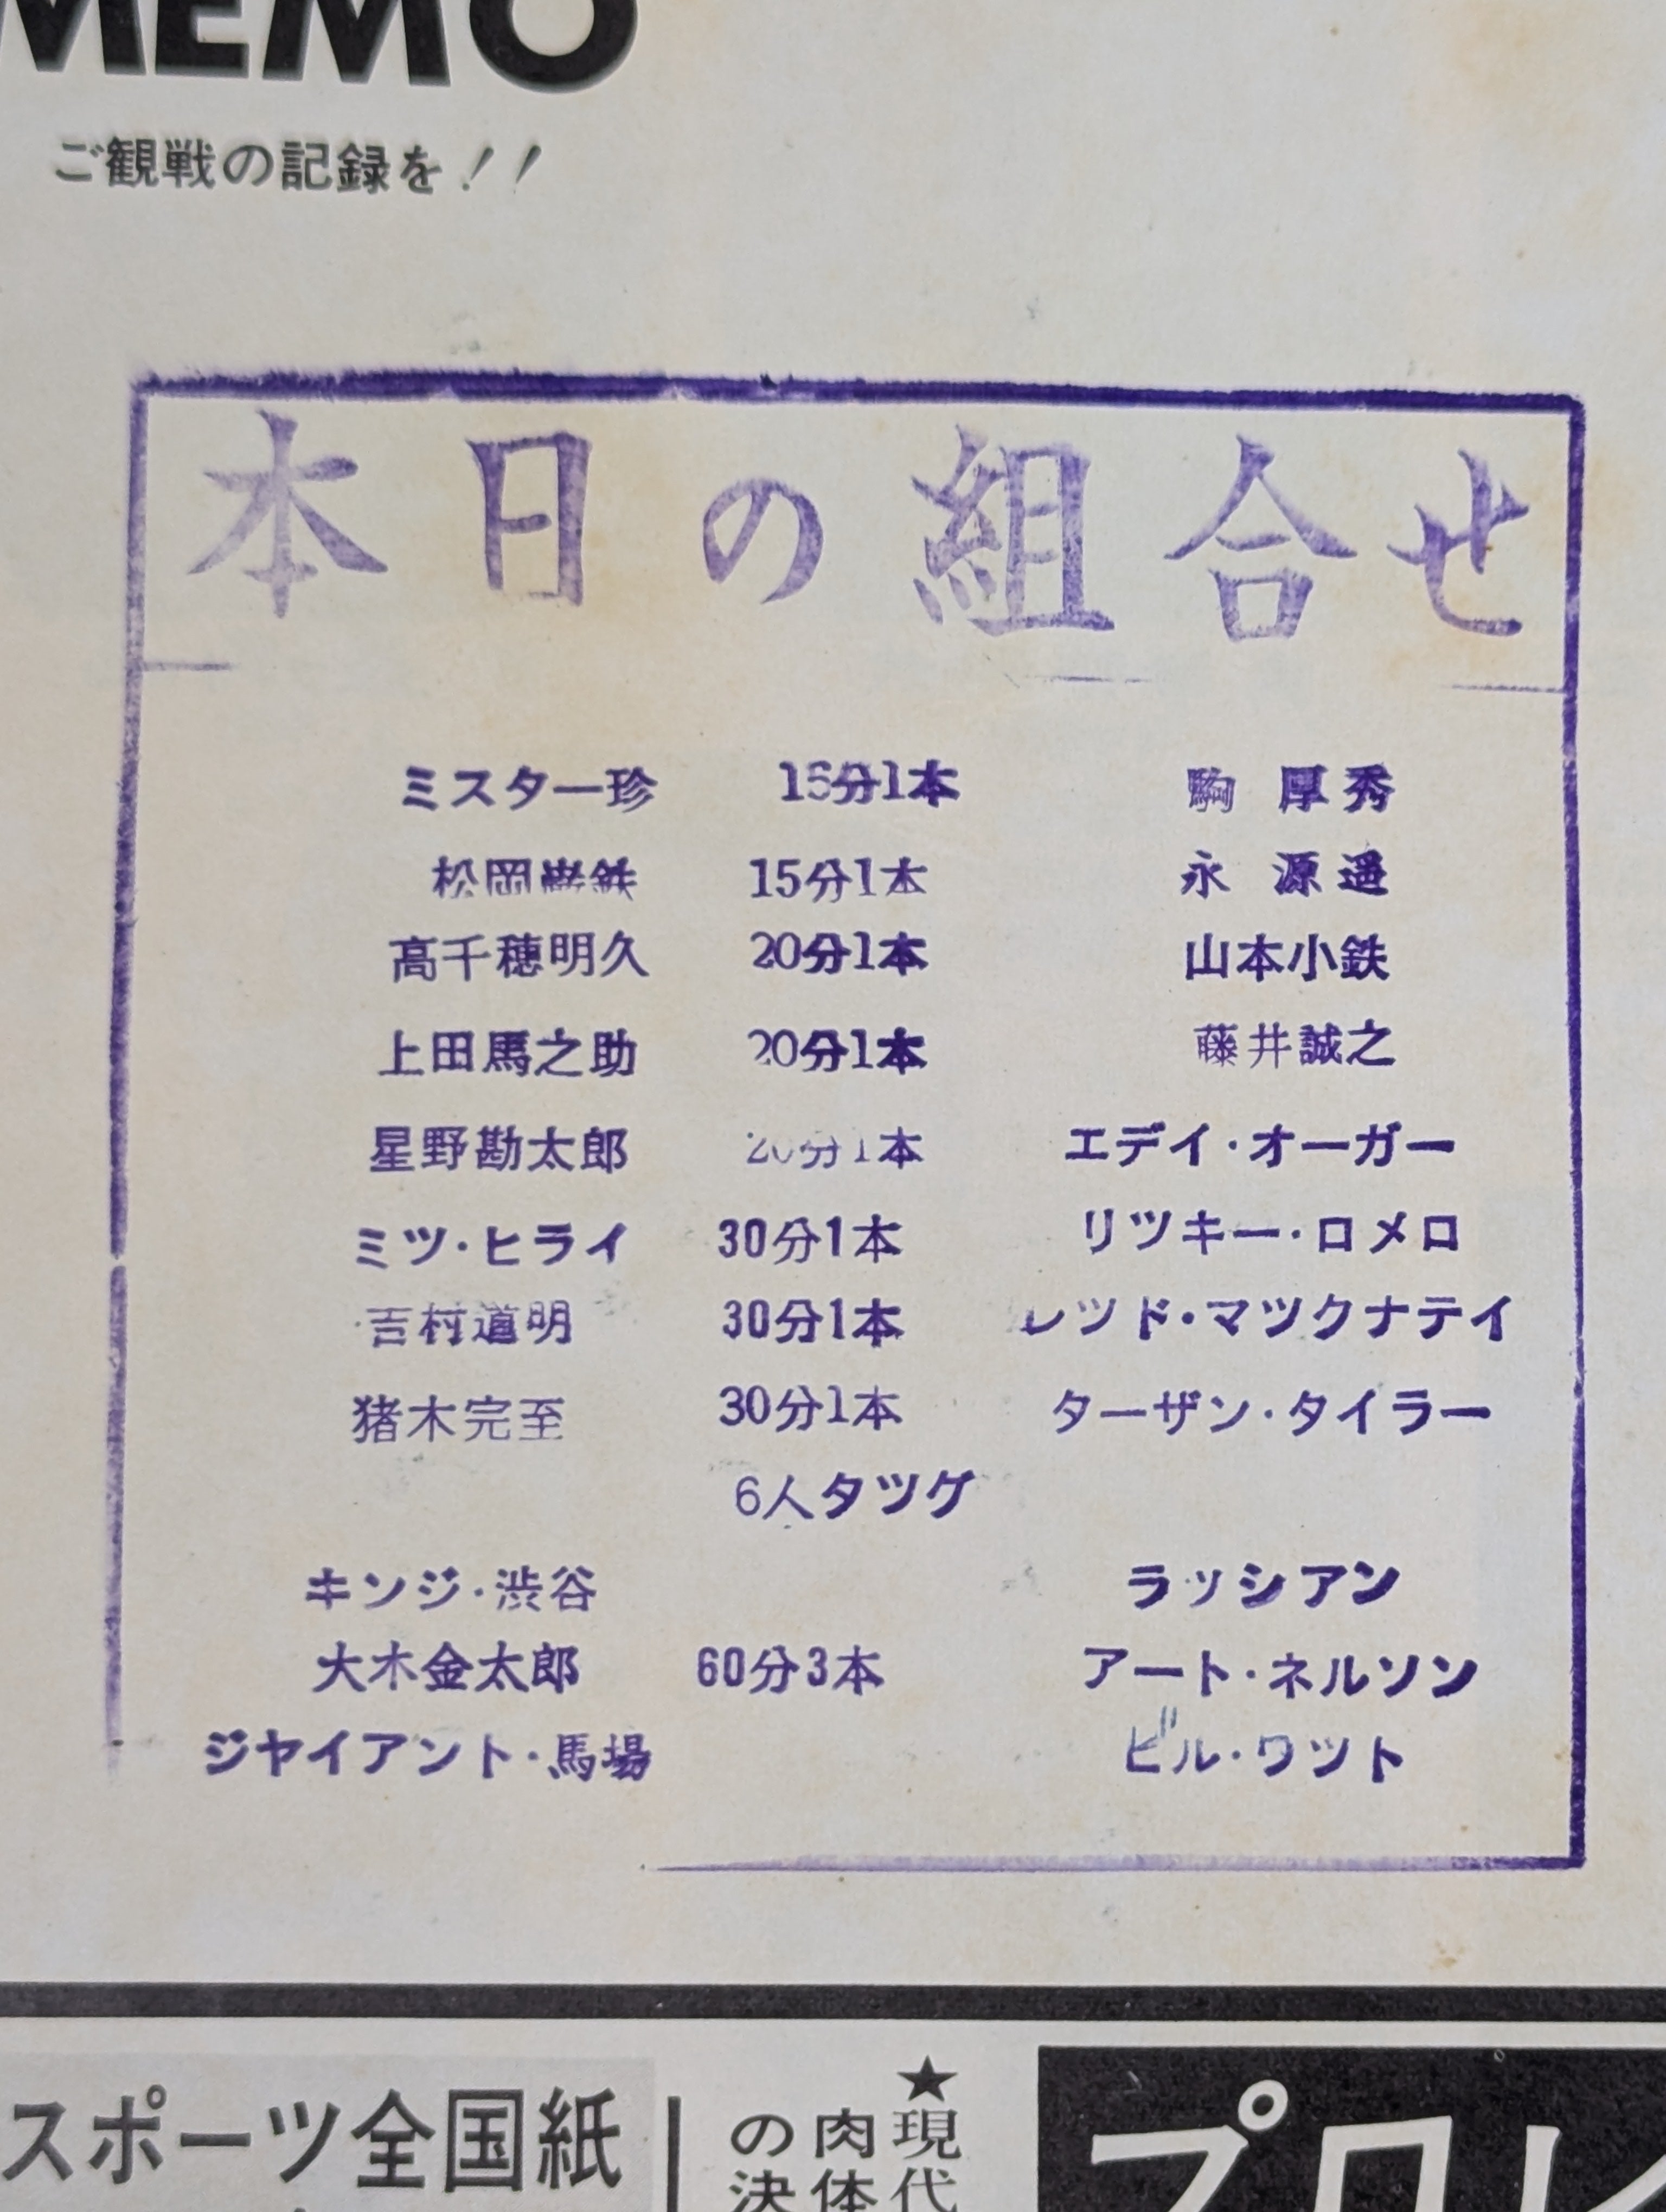 MEMO
ご観戦の記録を!!
本日の組合せ
ミスター珍 15分1本 駒 厚秀
松岡巌鉄 15分1本 永 源遥
高千穂明久 20分1本 山本小鉄
上田馬之助 20分1本 藤井誠之
星野勘太郎 20分1本 エデイ・オーガー
ミツ・ヒライ 30分1本 リツキー・ロメロ
吉村道明 30分1本 レツド・マツクナテイ
猪木完至 30分1本 ターザン・タイラー
6人タツグ
キンジ・渋谷 ラッシアン
大木金太郎 60分3本 アート・ネルソン
ジヤイアント・馬場 ビル・ワツト
スポーツ全国紙
★現代
肉体
の決
プロレ